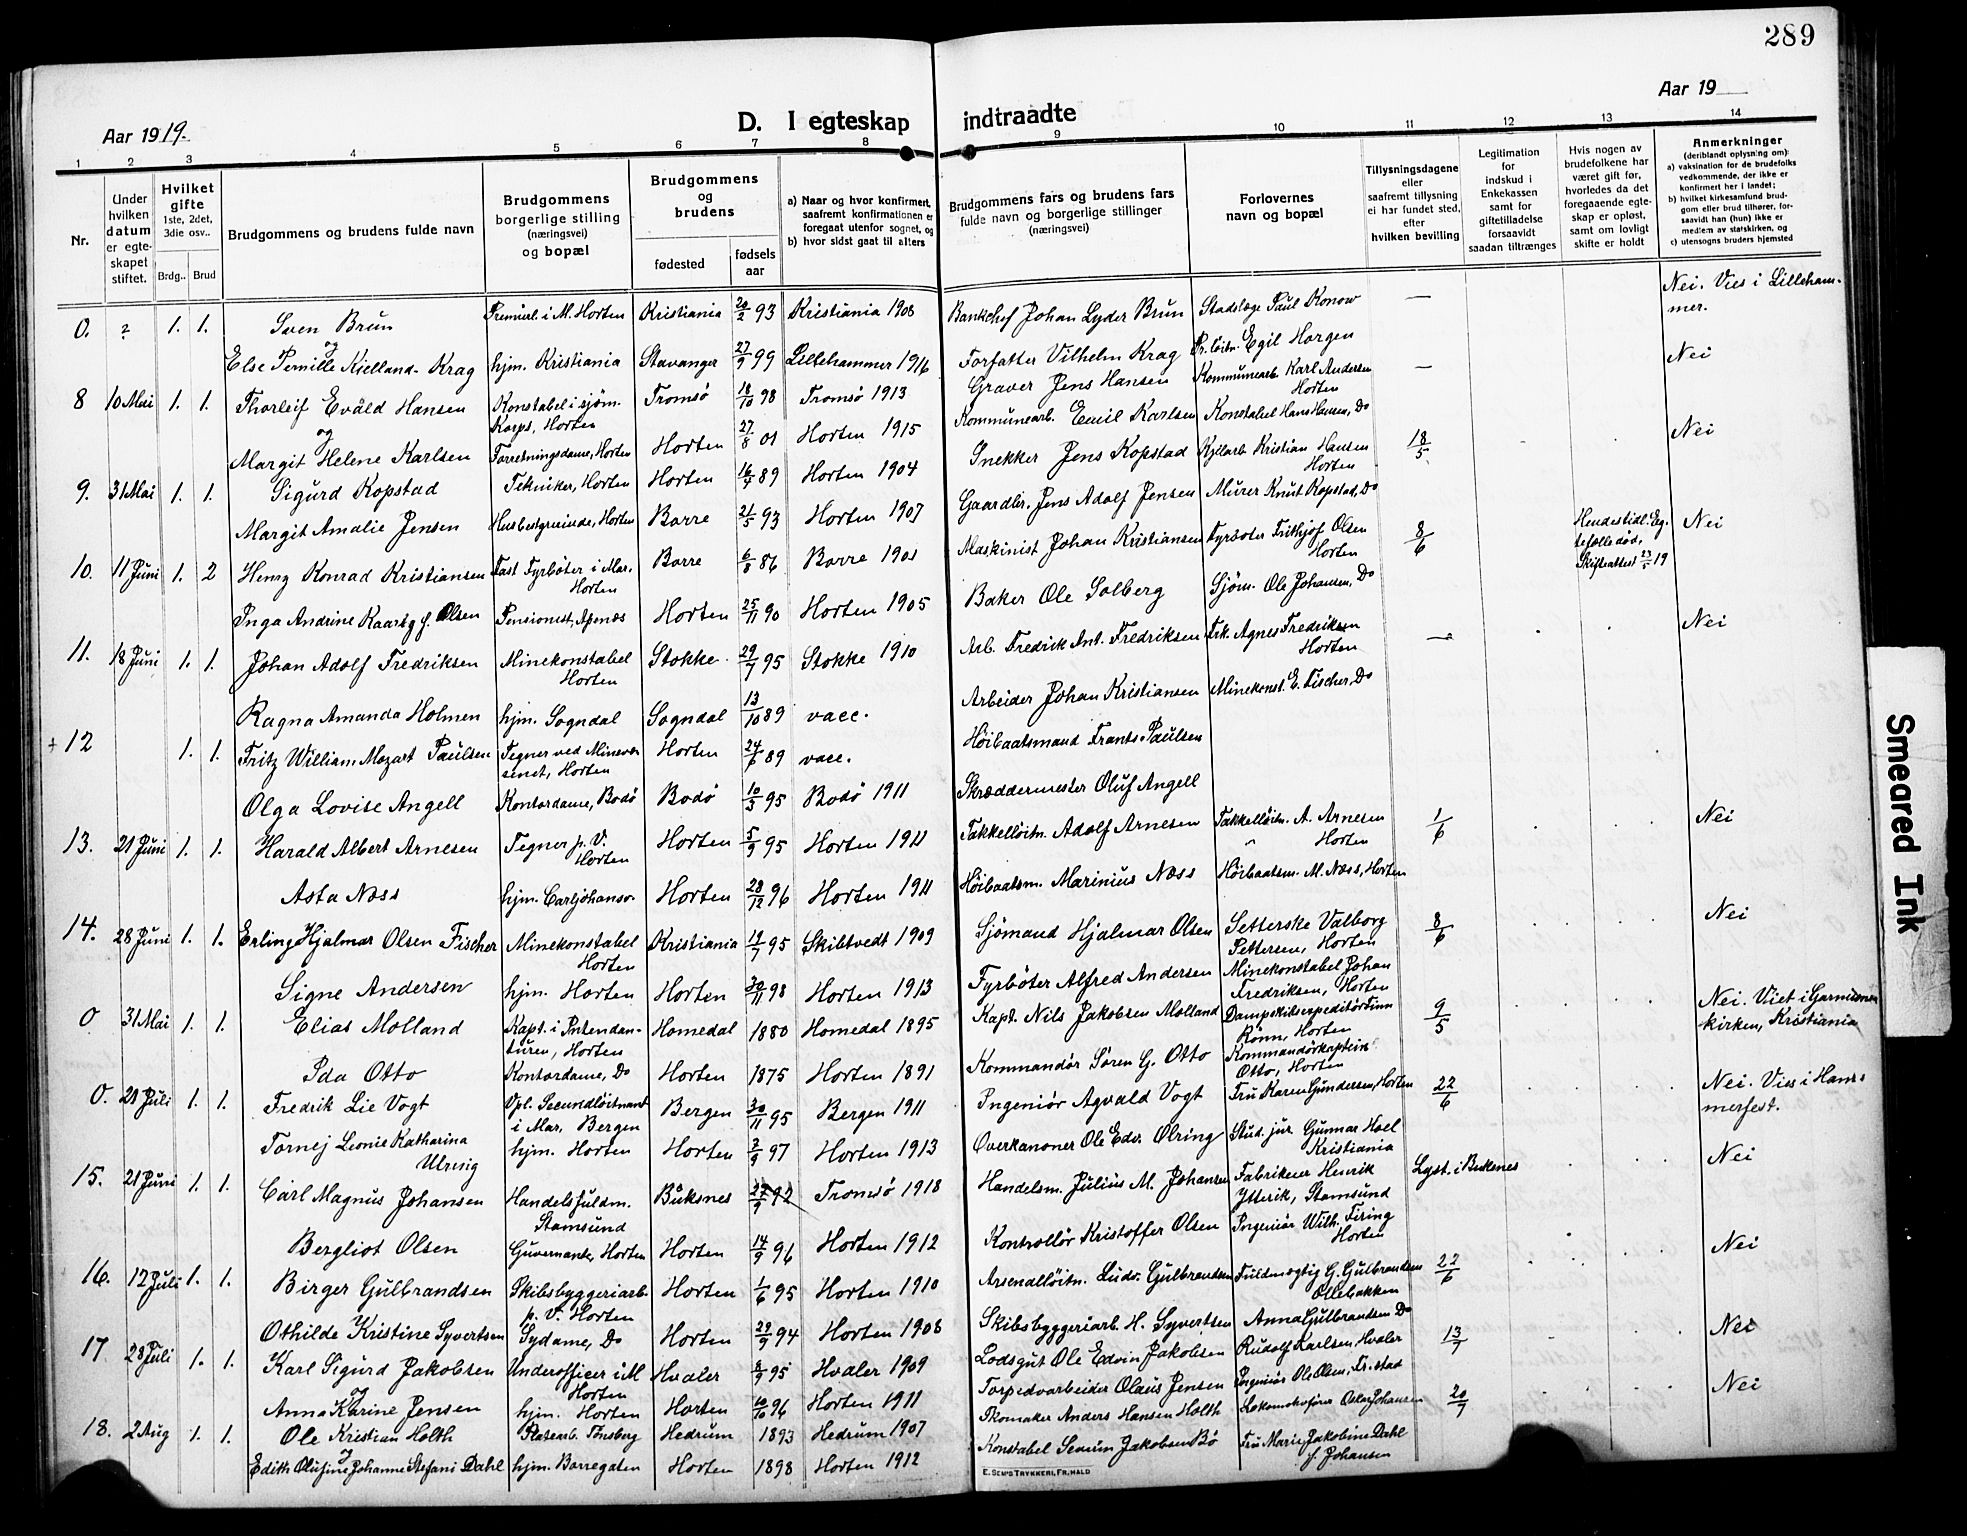 289
Aar 1919.
D. I egteskap indtraadte
Aar 19
1 2 3 4 5 6 7 8 9 10 11 12 13 14
Nr.
Under hvilken datum er egteskapet stiftet.
Hvilket gifte 1ste, 2det, 3die osv..
Brdg.. Brud
Brudgommens og brudens fulde navn
Brudgommens borgerlige stilling (næringsvei) og bopæl
Brudgommens og brudens
fødested
fødselsaar
a) Naar og hvor konfirmert, saafremt konfirmationen er foregaat utenfor sognet, og
b) hvor sidst gaat til alters
Brudgommens fars og brudens fars fulde navn og borgerlige stillinger (næringsvei)
Forlovernes navn og bopæl
Tillysningsdagene eller saafremt tillysning ei har fundet sted, efter hvilken bevilling
Legitimation for indskud i Enkekassen samt for giftetilladelse forsaavidt saadan tiltrænges
Hvis nogen av brudefolkene har været gift før, hvorledes da det foregaaende egteskap er opløst, samt om lovligt skifte er holdt
Anmerkninger (deriblandt oplysning om): a) vaksination for de brudefolks vedkommende, der ikke er konfirmert her i landet; b) hvilket kirkesamfund brudgom eller brud tilhører, forsaavidt han (hun) ikke er medlem av statskirken, og c) utensogns bruders hjemsted
0. ? 1. 1. Sven Brun Premierl. i M. Horten Kristiania 20/2 93 Kristiania 1908 Bankchef Johan Lyder Brun Stadslæge Paul Konow — Nei. Vies i Lillehammer.
og
Else Pernille Kjelland-Krag hjm. Kristiania Stavanger 27/9 99 Lillehammer 1916 Forfatter Vilhelm Krag Pr. løitn. Egil Horgen
8 10 Mai 1. 1. Thorleif Evald Hansen Konstabel i sjøm. Korps, Horten Tromsø 18/10 98 Tromsø 1913 Graver Jens Hansen Kommunearb. Karl Andersen Horten — Nei
og
Margit Helene Karlsen Forretningsdame, Horten Horten 27/8 01 Horten 1915 Kommunearb. Emil Karlsen Konstabel Hans Hansen, Do
9. 31 Mai 1. 1. Sigurd Kopstad Tekniker, Horten Horten 16/4 89 Horten 1904 Snekker Jens Kopstad Kjelarb. Kristian Hansen Horten 18/5 Nei
Margit Amalie Jensen Husbestyrerinde, Horten Borre 21/5 93 Horten 1907 Gaardbr. Jens Adolf Jensen Murer Knut Kopstad, Do
10. 11 Juni 1. 2 Henry Konrad Kristiansen Fast Fyrbøter i Mar. Horten Borre 6/8 86 Borre 1901 Maskinist Johan Kristiansen Fyrbøter Frithjof Olsen Horten 8/6 Hendes tidl. Egtefælle død, Skifteattest 23/5 19 Nei
Inga Andrine Kaarby f. Olsen Pensionist, Apenæs Horten 25/11 90 Horten 1905 Baker Ole Solberg Sjøm. Ole Johansen, Do
11. 18 Juni 1. 1. Johan Adolf Fredriksen Minekonstabel Horten Stokke 29/7 95 Stokke 1910 Arb. Fredrik Ant. Fredriksen Frk. Agnes Fredriksen Horten — Nei
Ragna Amanda Holmen hjm. Sogndal Sogndal 13/10 89 vacc. Arbeider Johan Kristiansen Minekonst. E. Fischer, Do
+ 12 1. 1. Fritz William Mozart Paulsen Tegner ved Minevæsenet, Horten Horten 24/6 89 vacc. Høibaatsmand Frants Paulsen
Olga Lovise Angell Kontordame, Bodø Bodø 10/5 95 Bodø 1911 Skræddermester Oluf Angell
13. 21 Juni 1. 1. Harald Albert Arnesen Tegner p. V. Horten Horten 5/9 95 Horten 1911 Takkelløitn. Adolf Arnesen Takkelløitn. A. Arnesen " Horten 1/6 Nei
Asta Næss hjm. Carljohansv. Horten 28/12 96 Horten 1911 Høibaatsm. Marinius Næss Høibaatsm. M. Næss, Horten
14. 28 Juni 1. 1. Erling Hjalmar Olsen Fischer Minekonstabel Horten Kristiania 19/7 95 Skibtvedt 1909 Sjømand Hjalmar Olsen Setterske Valborg Pettersen, Horten 8/6 Nei
Signe Andersen hjm. Horten Horten 30/11 98 Horten 1913 Fyrbøter Alfred Andersen Minekonstabel Johan Fredriksen, Horten
0 31 Mai 1. 1. Elias Molland Kapt. i Intendanturen, Horten Homedal 1880 Homedal 1895 Kapt. Nils Jakobsen Molland Dampskibsexpeditør Finn Rønn, Horten 9/5 Nei. Viet i Garnisonskirken, Kristiania
Ida Otto Kontordame, Do Horten 1875 Horten 1891 Kommandør Søren G. Otto Kommandørkaptein Otto, Horten
0. 21 Juli 1. 1. Fredrik Lie Vogt Vpl. Secundløitnant i Mar, Bergen Bergen 30/11 95 Bergen 1911 Ingeniør Agvald Vogt Fru Karen Gundersen, Horten 22/6 Nei. Vies i Hammerfest.
Tornej Leonie Katharina Ulresig hjm. Horten Horten 3/9 97 Horten 1913 Overkanoner Ole Edv. Olring Stud. jur Gunnar Hoel Kristiania
15. 21 Juni 1. 1. Carl Magnus Johansen Handelsfuldm. Stamsund Buksnes 27/9 92 Tromsø 1918 Handelsm. Julius M. Johansen Fabrikeier Henrik Ytterik, Stamsund Lyst. i Buksnes Nei
Bergliot Olsen Guvernante, Horten Horten 14/9 96 Horten 1912 Kontrollør Kristoffer Olsen Ingeniør Wilh. Firing Horten
16. 12 Juli 1. 1. Birger Gulbrandsen Skibsbyggeriarb. p. V. Horten Horten 1/6 95 Horten 1910 Arsenalløitn. Ludv. Gulbrandsen Fuldmægtig G. Gulbrandsen Ollebakken 22/6 Nei
Othilde Kristine Syvertsen Sydame, Do Horten 29/9 94 Horten 1908 Skibsbyggeriarb. H. Syvertsen Anna Gulbrandsen Do
17 23 Juli 1. 1. Karl Sigurd Jakobsen Underofficer i M Horten Hvaler 8/9 95 Hvaler 1909 Lodsgut Ole Edvin Jakobsen Rudolf Karlsen, Hvaler 13/7 Nei
og
Anna Karine Jensen hjm. Horten Horten 10/10 96 Horten 1911 Torpedoarbeider Olaus Jensen Ingeniør Ole Olsen, Fr.stad
18. 2 Aug 1. 1. Ole Kristian Holth Tønsberg Hedrum 1893 Hedrum 1907 Skomaker Anders Hansen Holth Lokomotivfører Oskar Johansen 20/7 Nei
og
Edith Olufine Johanne Stefani Dahl hjm. Borregaten Horten 1898 Horten 1912 Konstabel Severin Jakobsen Bø Fru Marie Jakobine Dahl f. Johansen
E. SEM'S TRYKKERI, FR.HALD
Smeared Ink